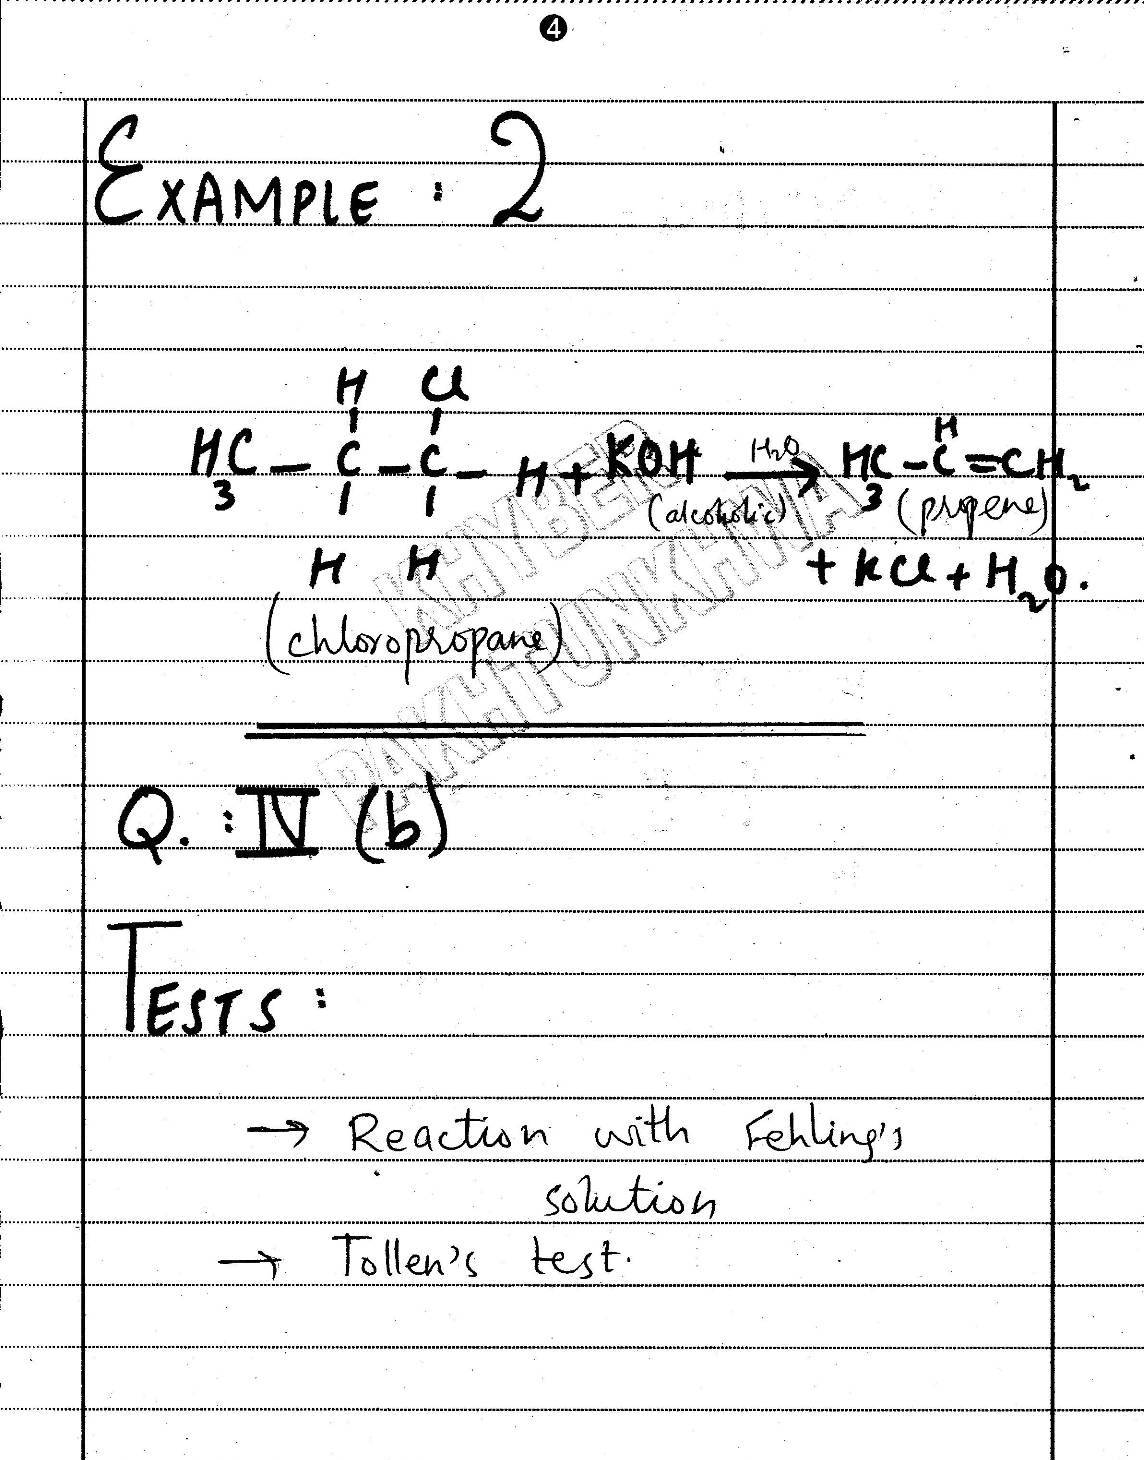 4
EXAMPLE : 2
H Cl
H3C - C - C - H + KOH H2O → H3C - C = CH2
H
(alcoholic) (propene)
H H + KCl + H2O.
(chloropropane)
KHYBER
PAKHTUNKHWA
Q. : IV (b)
TESTS :
→ Reaction with Fehling's
solution
→ Tollen's test.